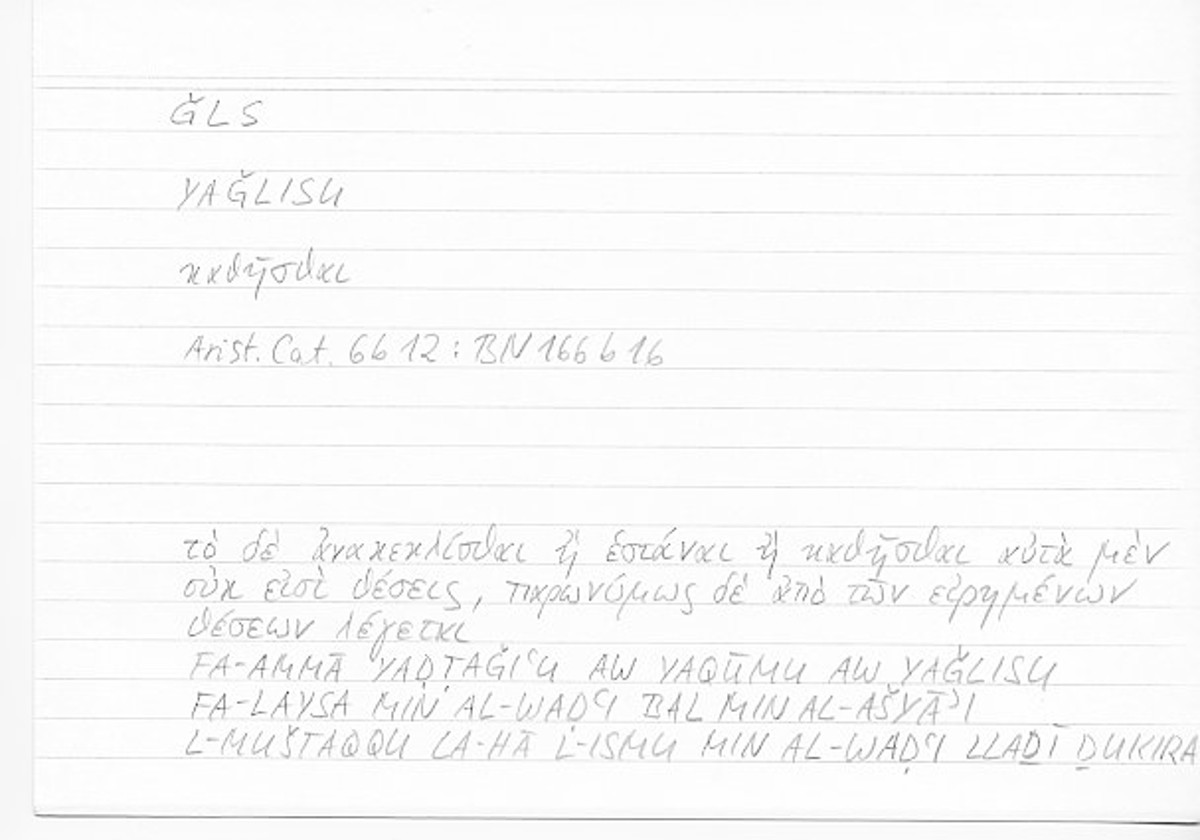 ǦLS
YAǦLISU
καθῆσθαι
Arist. Cat. 6b12 : BN 166b16
τὸ δὲ ἀνακεκλίσθαι ἢ ἑστάναι ἢ καθῆσθαι αὐτὰ μὲν
οὐκ εἰσὶ θέσεις, παρωνύμως δὲ ἀπὸ τῶν εἰρημένων
θέσεων λέγεται
FA-AMMĀ YAḌTAǦIʿU AW YAQŪMU AW YAǦLISU
FA-LAYSA MIN AL-WAḌʿI BAL MIN AL-AŠYĀʾI
L-MUŠTAQQU LA-HĀ L-ISMU MIN AL-WAḌʿI LLAḎĪ ḎUKIRA